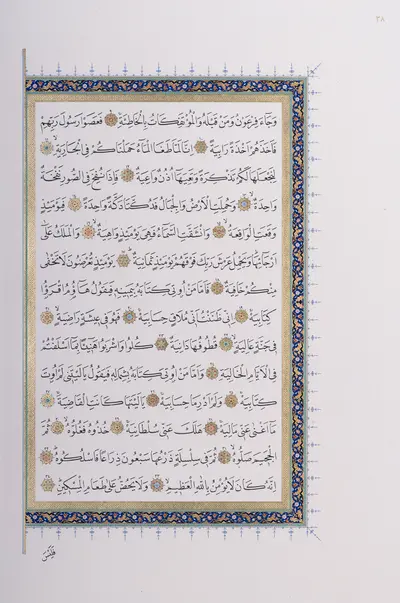 وَجَاءَ فِرْعَوْنُ وَمَنْ قَبْلَهُ وَالْمُؤْتَفِكَاتُ بِالْخَاطِئَةِ فَعَصَوْا رَسُولَ رَبِّهِمْ
فَأَخَذَهُمْ أَخْذَةً رَابِيَةً إِنَّا لَمَّا طَغَا الْمَاءُ حَمَلْنَاكُمْ فِي الْجَارِيَةِ
لِنَجْعَلَهَا لَكُمْ تَذْكِرَةً وَتَعِيَهَا أُذُنٌ وَاعِيَةٌ فَإِذَا نُفِخَ فِي الصُّورِ نَفْخَةٌ
وَاحِدَةٌ وَحُمِلَتِ الْأَرْضُ وَالْجِبَالُ فَدُكَّتَا دَكَّةً وَاحِدَةً فَيَوْمَئِذٍ
وَقَعَتِ الْوَاقِعَةُ وَانْشَقَّتِ السَّمَاءُ فَهِيَ يَوْمَئِذٍ وَاهِيَةٌ وَالْمَلَكُ عَلَى
أَرْجَائِهَا وَيَحْمِلُ عَرْشَ رَبِّكَ فَوْقَهُمْ يَوْمَئِذٍ ثَمَانِيَةٌ يَوْمَئِذٍ تُعْرَضُونَ لَا تَخْفَى
مِنْكُمْ خَافِيَةٌ فَأَمَّا مَنْ أُوتِيَ كِتَابَهُ بِيَمِينِهِ فَيَقُولُ هَاؤُمُ اقْرَؤُا
كِتَابِيَهْ إِنِّي ظَنَنْتُ أَنِّي مُلَاقٍ حِسَابِيَهْ فَهُوَ فِي عِيشَةٍ رَاضِيَةٍ
فِي جَنَّةٍ عَالِيَةٍ قُطُوفُهَا دَانِيَةٌ كُلُوا وَاشْرَبُوا هَنِيئًا بِمَا أَسْلَفْتُمْ
فِي الْأَيَّامِ الْخَالِيَةِ وَأَمَّا مَنْ أُوتِيَ كِتَابَهُ بِشِمَالِهِ فَيَقُولُ يَا لَيْتَنِي لَمْ أُوتَ
كِتَابِيَهْ وَلَمْ أَدْرِ مَا حِسَابِيَهْ يَا لَيْتَهَا كَانَتِ الْقَاضِيَةَ
مَا أَغْنَى عَنِّي مَالِيَهْ هَلَكَ عَنِّي سُلْطَانِيَهْ خُذُوهُ فَغُلُّوهُ ثُمَّ
الْجَحِيمَ صَلُّوهُ ثُمَّ فِي سِلْسِلَةٍ ذَرْعُهَا سَبْعُونَ ذِرَاعًا فَاسْلُكُوهُ
إِنَّهُ كَانَ لَا يُؤْمِنُ بِاللَّهِ الْعَظِيمِ وَلَا يَحُضُّ عَلَى طَعَامِ الْمِسْكِينِ
فَلَيْسَ